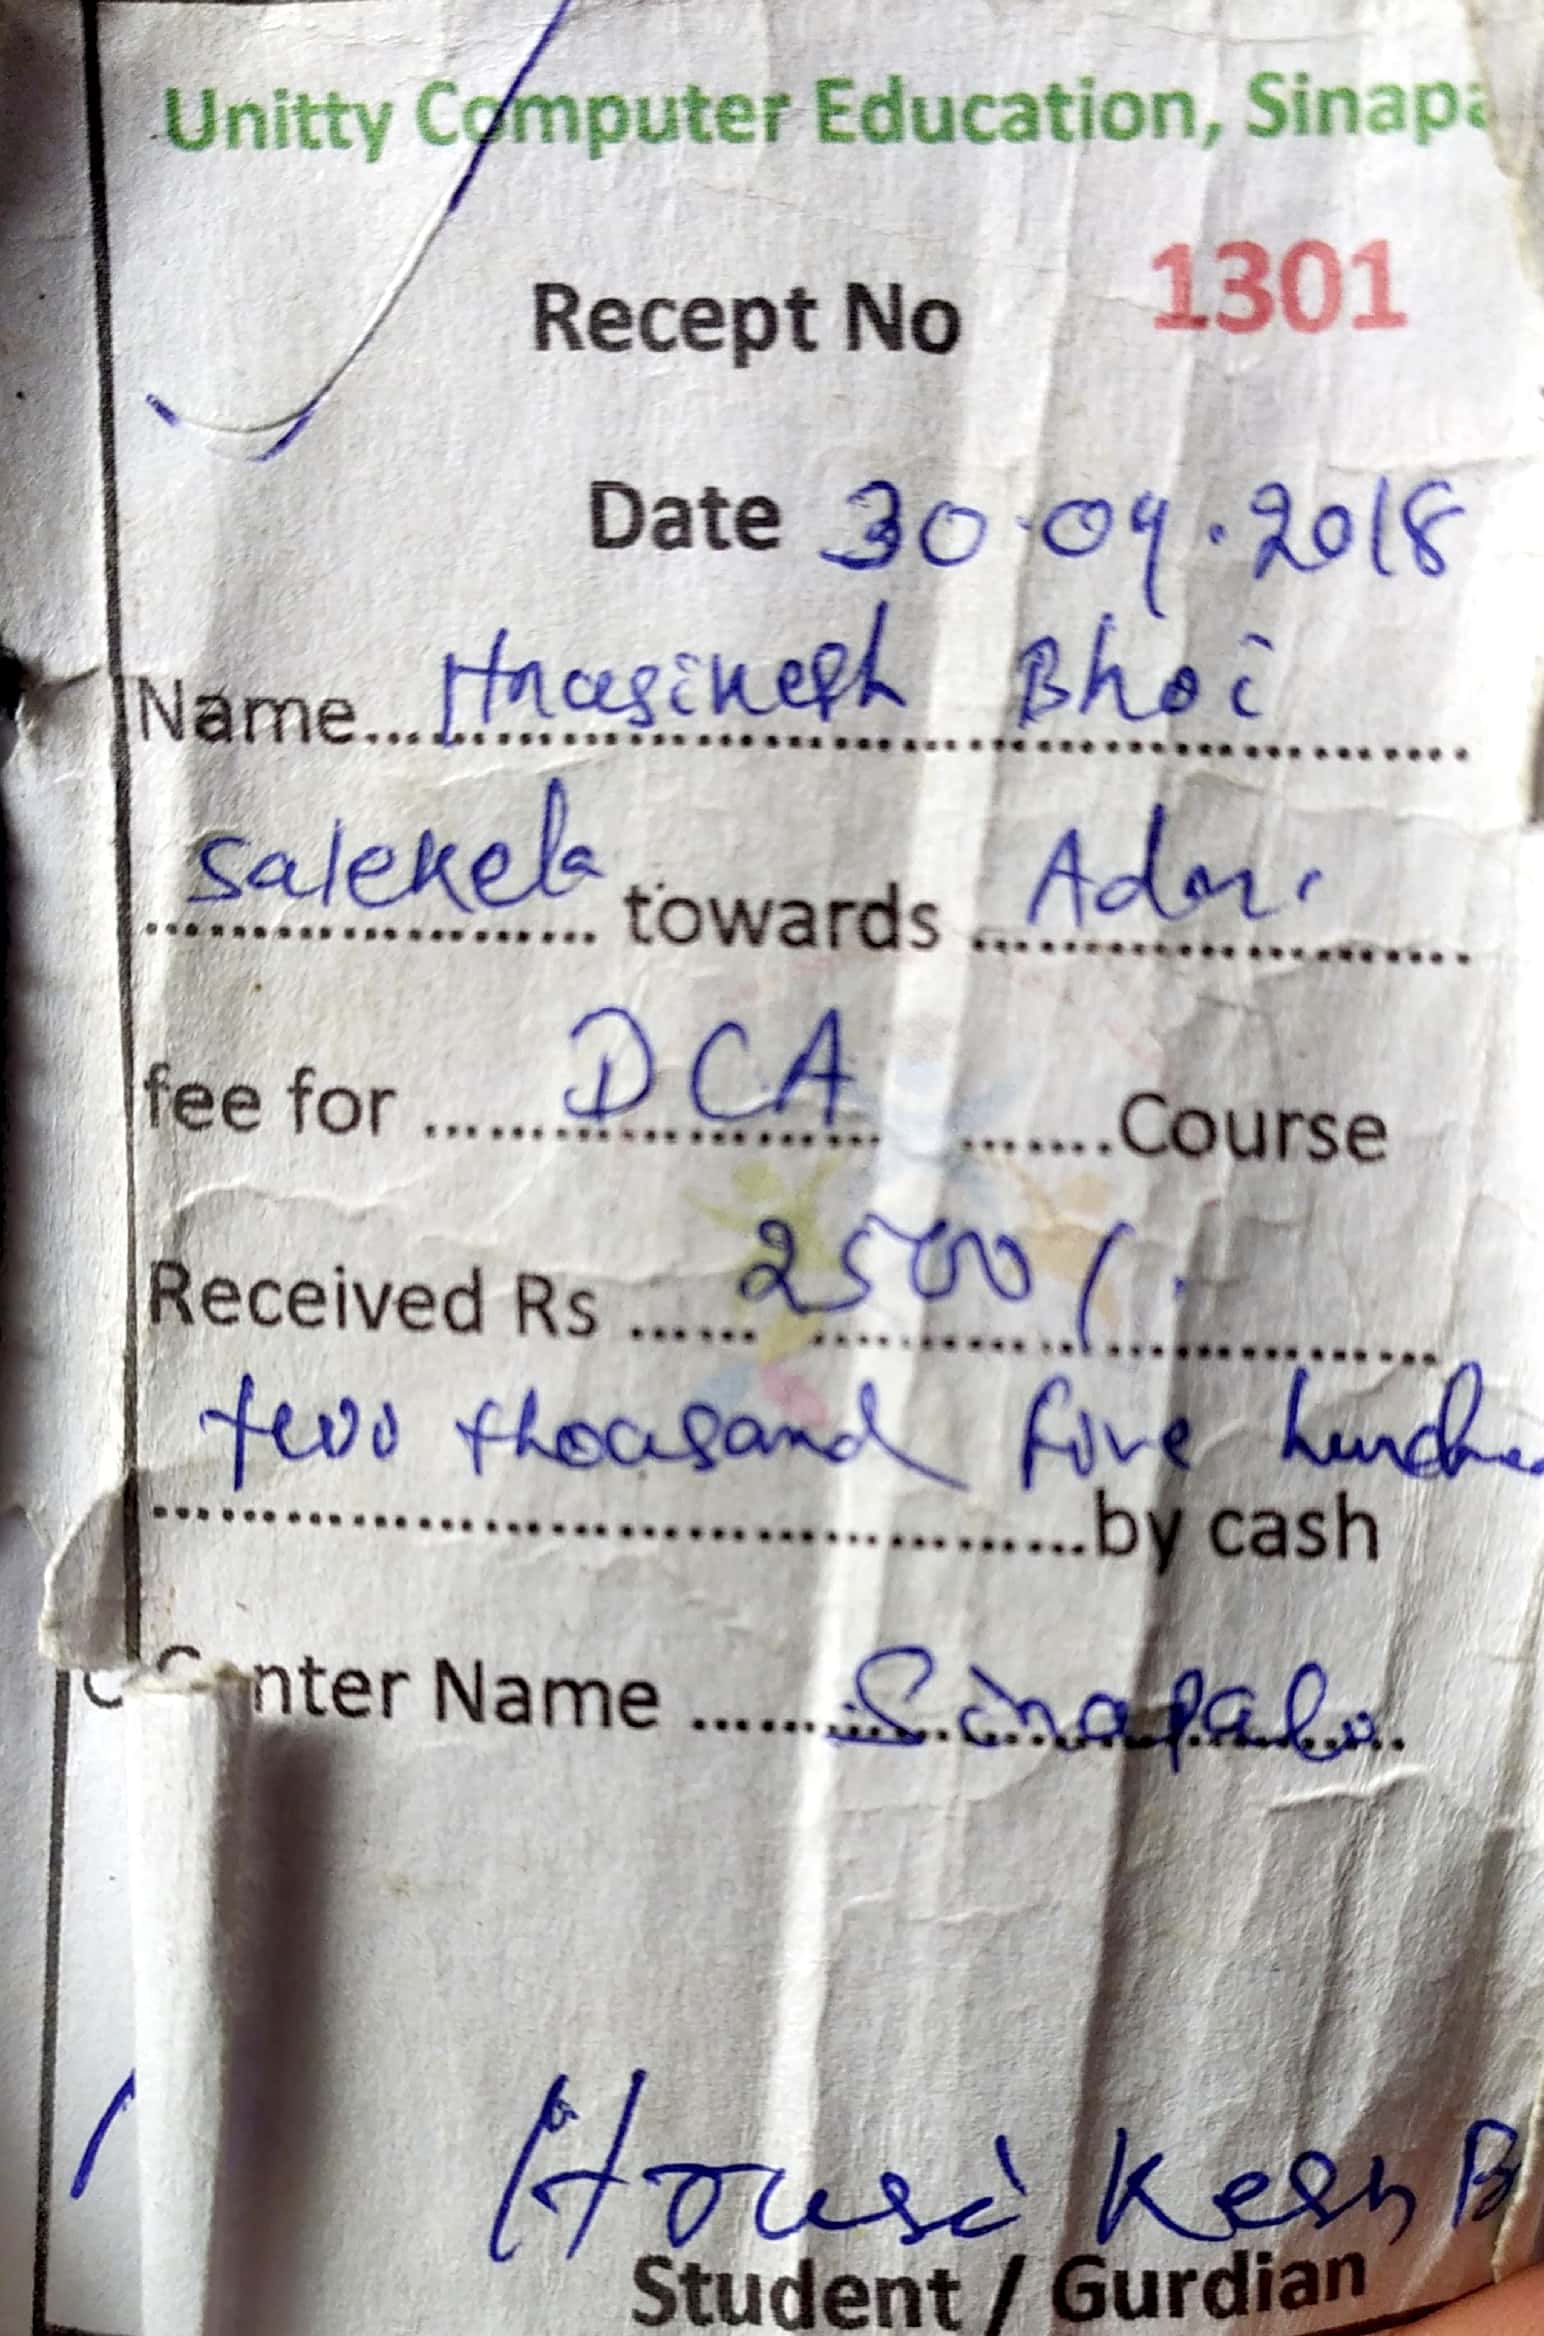 Unitty Computer Education, Sinapa
Recept No 1301
Date 30.09.2018
Name.... Hrusikesh Bhoi
Salekela towards Adm.
fee for ...... DCA .......Course
Received Rs ...... 2500/-
two thousand five hundred
....................by cash
Center Name ...... Sinapali
Hrusikesh B
Student / Gurdian